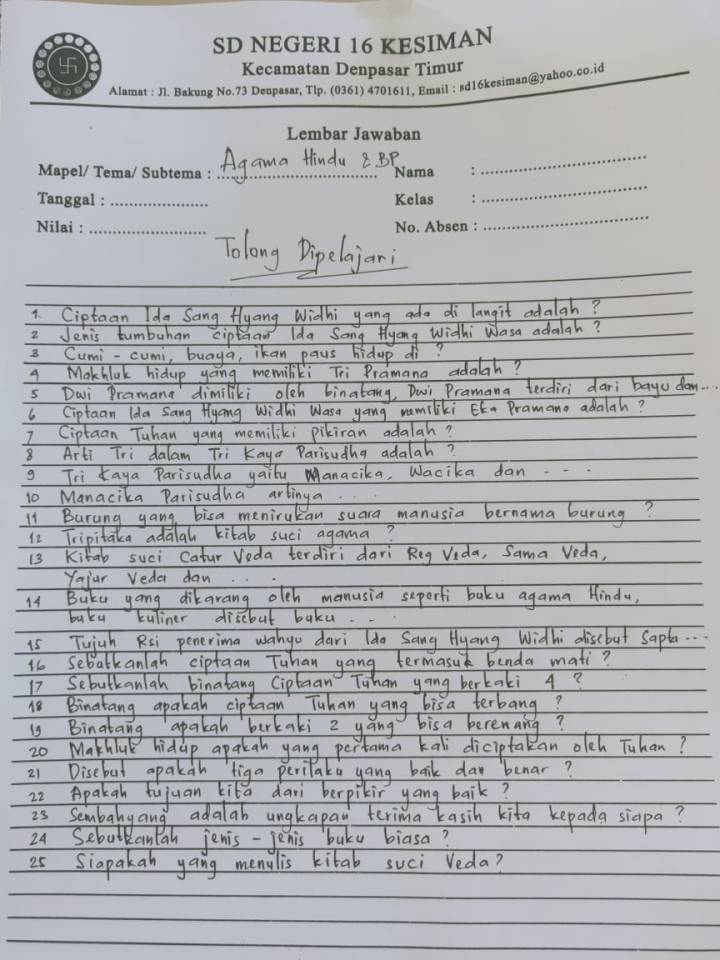 SD NEGERI 16 KESIMAN
Kecamatan Denpasar Timur
Alamat : Jl. Bakung No.73 Denpasar, Tlp. (0361) 4701611, Email : sd16kesiman@yahoo.co.id
Lembar Jawaban
Mapel/ Tema/ Subtema : Agama Hindu & BP Nama : ..............................
Tanggal : .................. Kelas : ..............................
Nilai : ...................... No. Absen : ..............................
Tolong Dipelajari
1. Ciptaan Ida Sang Hyang Widhi yang ada di langit adalah ?
2 Jenis tumbuhan ciptaan Ida Sang Hyang Widhi Wasa adalah ?
3 Cumi - cumi, buaya, ikan paus hidup di ?
4 Makhluk hidup yang memiliki Tri Pramana adalah ?
5 Dwi Pramana dimiliki oleh binatang, Dwi Pramana terdiri dari bayu dan...
6 Ciptaan Ida Sang Hyang Widhi Wasa yang memiliki Eka Pramana adalah ?
7 Ciptaan Tuhan yang memiliki pikiran adalah ?
8 Arti Tri dalam Tri Kaya Parisudha adalah ?
9 Tri Kaya Parisudha yaitu Manacika, Wacika dan . . .
10 Manacika Parisudha artinya . . .
11 Burung yang bisa menirukan suara manusia bernama burung ?
12 Tripitaka adalah kitab suci agama ?
13 Kitab suci Catur Veda terdiri dari Reg Veda, Sama Veda,
Yajur Veda dan . . .
14 Buku yang dikarang oleh manusia seperti buku agama Hindu,
buku kuliner disebut buku . . .
15 Tujuh Rsi penerima wahyu dari Ida Sang Hyang Widhi disebut Sapta...
16 Sebutkanlah ciptaan Tuhan yang termasuk benda mati ?
17 Sebutkanlah binatang Ciptaan Tuhan yang berkaki 4 ?
18 Binatang apakah ciptaan Tuhan yang bisa terbang ?
19 Binatang apakah berkaki 2 yang bisa berenang ?
20 Makhluk hidup apakah yang pertama kali diciptakan oleh Tuhan ?
21 Disebut apakah tiga perilaku yang baik dan benar ?
22 Apakah tujuan kita dari berpikir yang baik ?
23 Sembahyang adalah ungkapan terima kasih kita kepada siapa ?
24 Sebutkanlah jenis - jenis buku biasa ?
25 Siapakah yang menulis kitab suci Veda ?